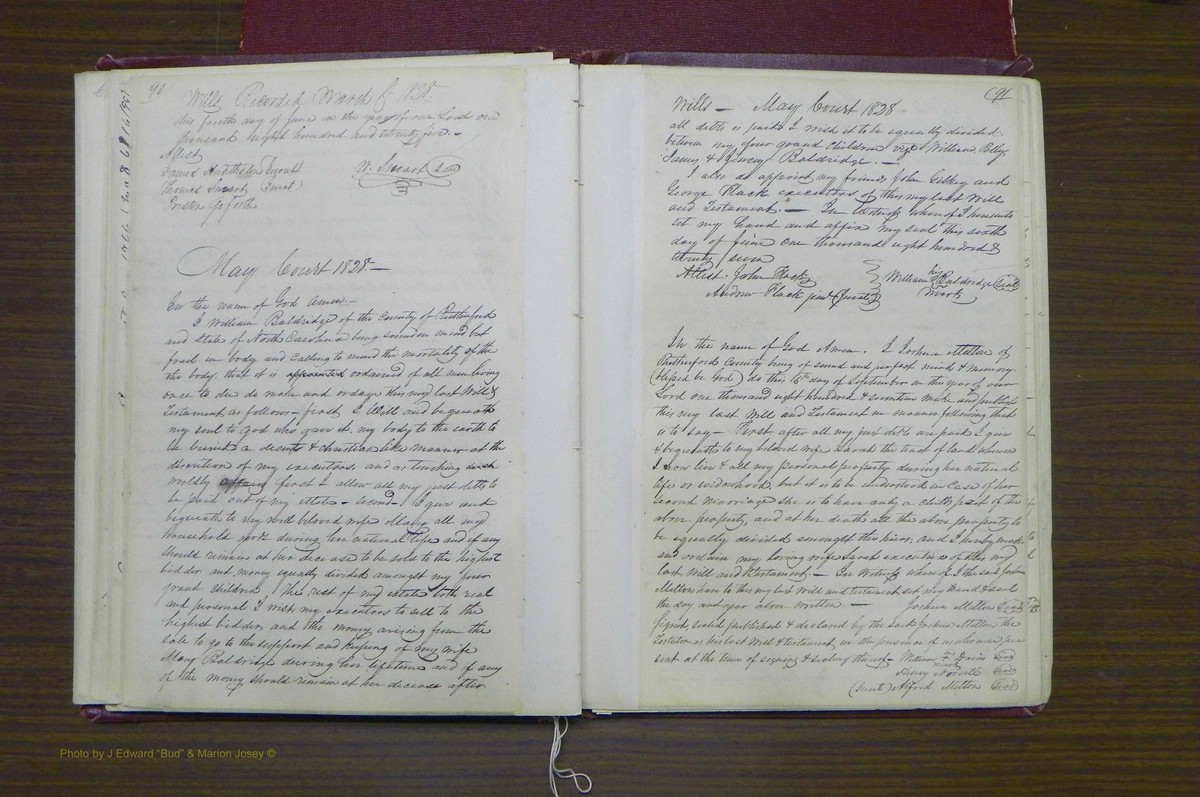 90
Wills Recorded March Ct 1828
this fourth day of June in the year of our Lord one
thousand eight hundred and twenty five. —
Attest
James
Thomas Smart (Jurat)
W. Smart Seal
May Court 1828. —
In the name of God Amen. —
I William Baldridge of the County of Rutherford
and State of North Carolina being sound in mind but
frail in body and calling to mind the mortality of the
the body. that it is appointed ordained of all men living
once to die do make and ordain this my last Will &
Testament as follows. first, I Will and bequeath
my soul to God who gave it. my body to the earth to
be buried a decent & christian like manner at the
discretion of my executors. and as touching such
worldly affairs first I allow all my just debts to
be paid out of my estate. second. I give and
bequeath to my well beloved wife Mary all my
household goods during her natural life and if any
should remain at her decease to be sold to the highest
bidder and money equally divided amongst my four
grand children. The rest of my estate both real
and personal I wish my executors to sell to the
highest bidder, and the money arising from the
sale to go to the support and keeping of my wife
Mary Baldridge during her lifetime and if any
of the money should remain at her decease after
91
Wills — May Court 1828
all debts is paid I wish it to be equally divided
between my four grand Children viz. William, Polly,
James & Baldridge. —
I also do appoint my friends John and
George Flack executors of this my last Will
and Testament. — In Witness whereof I hereunto
set my hand and affix my seal this sixth
day of June one thousand eight hundred &
twenty seven
Attest. John Flack
Andrew Flack (Jurat)
William his Baldridge Seal
mark
In the name of God Amen. I Joshua Melton of
Rutherford County being of sound and perfect mind & memory.
(blessed be God) do this 6th day of September in the year of our
Lord one thousand eight hundred & seventeen make and publish
this my last Will and Testament in manner following, that
is to say — First after all my just debts are paid, I give
& bequeath to my beloved wife Sarah the tract of land whereon
I now live & all my personal property during her natural
life or widowhood, but it is to be understood in case of her
second marriage she is to have only a childs part of the
above property, and at her death all the above property to
be equally divided amongst the heirs, and I hereby make
and ordain my loving wife Sarah executrix of this my
last Will and testament. — In Witness where of I the said Joshua
Melton have to this my last Will and testament set my hand & seal
the day and year above written — Joshua Melton Seal
signed, sealed, published & declared by the said Joshua Melton the
Testator as his last Will & testament, in the presence of us who were pre
sent at the time of signing & sealing thereof — William Seal
mark
Seal
(Jurat) Alfred Melton Seal
Photo by J Edward "Bud" & Marion Josey ©